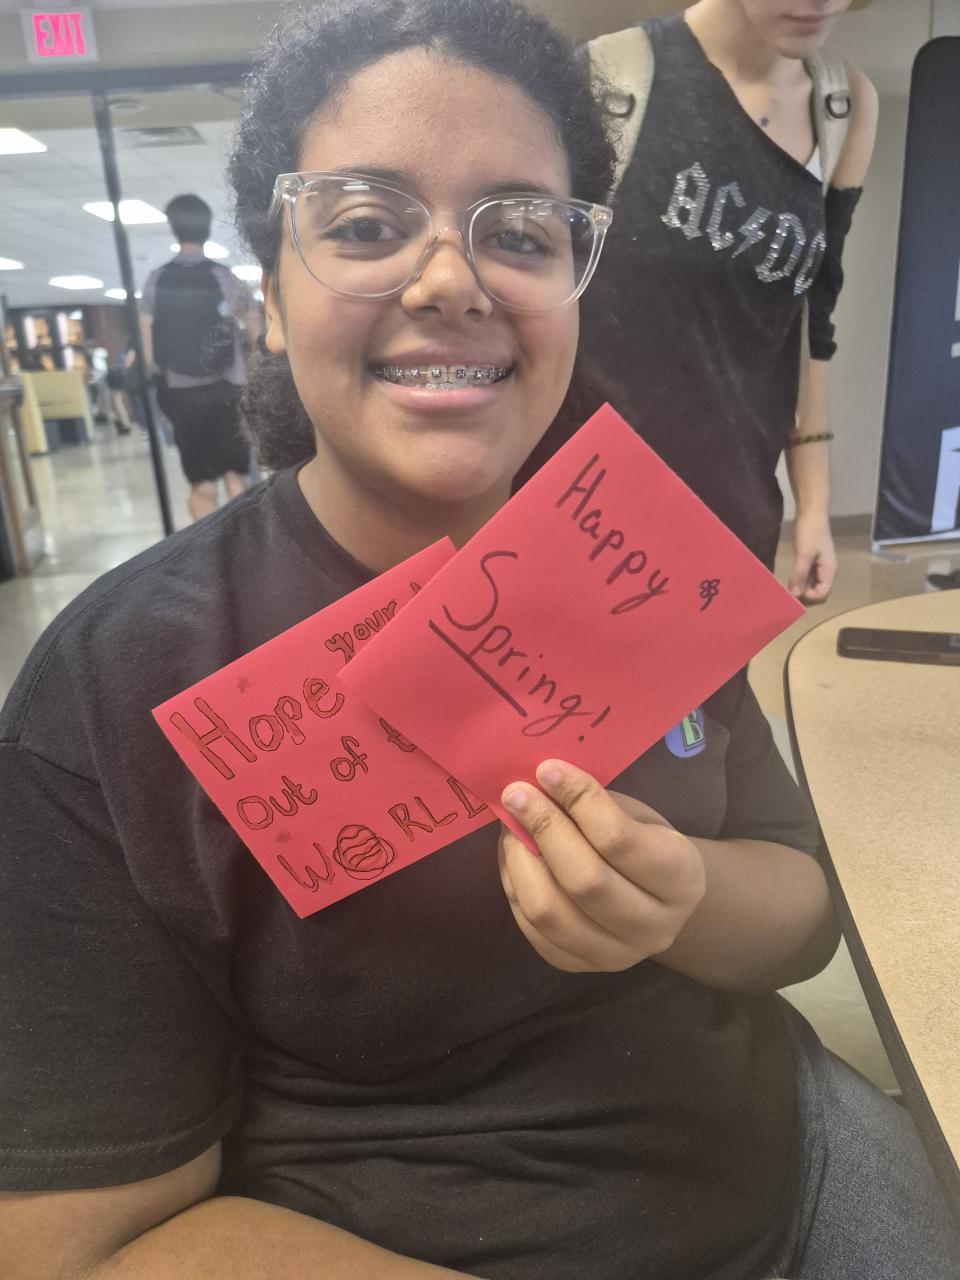 EXIT
AC⚡DC
Happy
Spring!
Hope your
Out of
WORLD
B